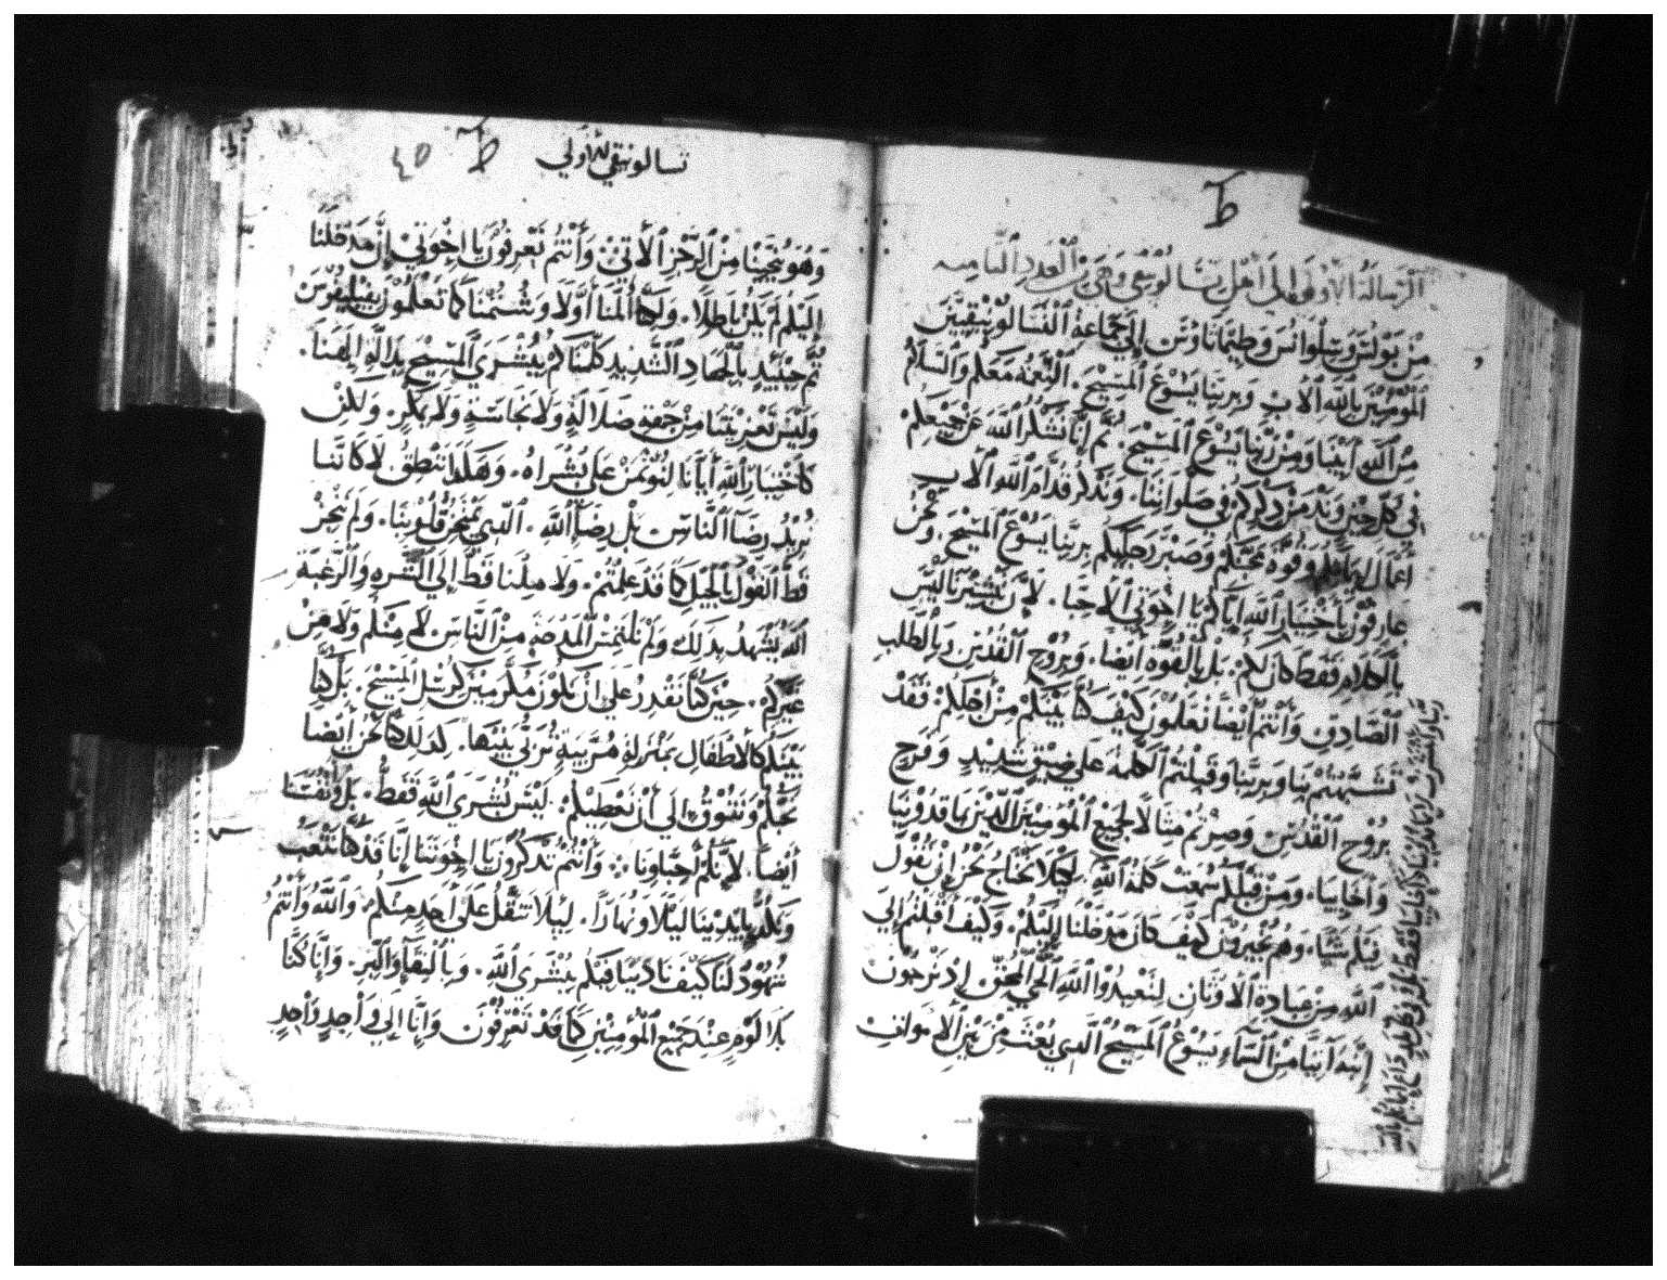 ط
الرسالة الاولى الى اهل تسالونيقى وهى من العدد الثامنه
مِن بَوْلُسَ وَسِلْوَانُسَ وَطِيمَاتَاوُسَ إِلَى جَمَاعَةِ ٱلْتَسَالُونِيقِيِّينَ
ٱلْمُؤْمِنِينَ بِٱللَّهِ ٱلْأَبِ وَبِرَبِّنَا يَسُوْعَ ٱلْمَسِيْحَ. ٱلنِّعْمَةُ مَعَكُمْ وَٱلسَّلَامُ
مِنَ ٱللَّهِ أَبِيْنَا وَمِنْ رَبِّنَا يَسُوْعَ ٱلْمَسِيْحَ. ثُمَّ إِنَّا نَشْكُرُ ٱللَّهَ عَنْ جَمِيْعِكُمْ
فِي كُلِّ حِيْنٍ وَنُدْمِنُ ذِكْرَكُمْ فِي صَلَوَاتِنَا. وَنَذْكُرُ قُدَّامَ ٱللَّهِ ٱلْأَبِ
أَعْمَالَ إِيمَانِكُمْ وَقُوَّةَ مَحَبَّتِكُمْ وَصَبْرَ رَجَايِكُمْ بِرَبِّنَا يَسُوْعَ ٱلْمَسِيْحَ. وَنَحْنُ
عَارِفُوْنَ بِٱخْتِيَارِ ٱللَّهِ إِيَّاكُمْ يَا إِخْوَتِي ٱلْأَحِبَّا. لِأَنَّ تَبْشِيْرَنَا لَيْسَ
بِٱلْكَلَامِ فَقَطْ كَانَ لَكُمْ. بَلْ بِٱلْقُوَّةِ أَيْضًا. وَبِرُوْحِ ٱلْقُدُسِ وَبِٱلطَّلَبِ
ٱلصَّادِقِ وَأَنْتُمْ أَيْضًا تَعْلَمُوْنَ كَيْفَ كُنَّا بَيْنَكُمْ مِنْ أَجْلِكُمْ. فَقَدْ
تَشَبَّهْتُمْ بِنَا وَبِرَبِّنَا وَقَبِلْتُمُ ٱلْكَلِمَةَ عَلَى ضِيْقٍ شَدِيْدٍ وَفَرَحٍ
بِرُوْحِ ٱلْقُدُسِ وَصِرْتُمْ مِثَالًا لِجَمِيْعِ ٱلْمُؤْمِنِيْنَ ٱلَّذِيْنَ بِمَاقَدُوْنِيَا
وَأَخَايِيَا. وَمِنْ قِبَلِكُمْ سُمِعَتْ كَلِمَةُ ٱللَّهِ لِكَيْلَا نَحْتَاجَ نَحْنُ إِنْ نَقُوْلَ
فِيْكُمْ شَيًّا. وَهُمْ يُخْبِرُوْنَ كَيْفَ كَانَ مَدْخَلُنَا إِلَيْكُمْ. وَكَيْفَ أَقْبَلْتُمْ إِلَى
ٱللَّهِ مِنْ عِبَادَةِ ٱلْأَوْثَانِ لِتَعْبُدُوْا ٱللَّهَ ٱلْحَيَّ ٱلْمُحِقَّ إِذْ تَرْجُوْنَ
إِبْنَهُ آتِيًا مِنَ ٱلسَّمَاءِ يَسُوْعُ ٱلْمَسِيْحُ ٱلَّذِي بُعِثَ مِنْ بَيْنِ ٱلْأَمْوَاتِ
تسالونيقي الاولي
ط
٤٥
وَهُوَ يُنَجِّيْنَا مِنَ ٱلرِّجْزِ ٱلْأَتِيْ وَأَنْتُمْ تَعْرِفُوْنَ يَا إِخْوَتِيْ إِنَّ مَدْخَلَنَا
إِلَيْكُمْ لَمْ يَكُنْ بَاطِلًا. وَلَكِنَّا أَلِمْنَا أَوَّلًا وَشُتِمْنَا كَمَا تَعْلَمُوْنَ بِفِيْلِيفُوْسَ
ثُمَّ حِيْنَيِذٍ بِٱلْجِهَادِ ٱلشَّدِيْدِ كَلَّمْنَاكُمْ بِبُشْرَى ٱلْمَسِيْحِ بِدَالَّةِ إِلَهِنَا.
وَلَيْسَ تَعْزِيَتُنَا مِنْ جِهَةِ ضَلَالَةٍ وَلَا نَجَاسَةٍ وَلَا بِمَكْرٍ. وَلَكِنْ
كَٱخْتِبَارِ ٱللَّهِ أَيَّانَا لِنُؤْتَمَنَ عَلَى بُشْرَاهُ. وَهَكَذَا نَنْطِقُ لَا كَأَنَّنَا
نُرِيْدُ رِضَا ٱلنَّاسِ بَلْ رِضَا ٱللَّهِ. ٱلَّذِي يَمْتَحِنُ قُلُوْبَنَا. وَلَمْ نُحِزْ
قَطُّ ٱلْقَوْلَ بِٱلْحِيَلِ كَمَا قَدْ عَلِمْتُمْ. وَلَا مِلْنَا قَطُّ إِلَى ٱلشَّرَهِ وَٱلرَّغْبَةِ
ٱللَّهُ يَشْهَدُ بِذَلِكَ وَلَمْ نَلْتَمِسْ ٱلْمَدْحَةَ مِنَ ٱلنَّاسِ لَا مِنْكُمْ وَلَا مِنْ
غَيْرِكُمْ. حِيْنَ كُنَّا نَقْدِرُ عَلَى أَنْ نَكُوْنَ مُكَرَّمِيْنَ كَرُسُلِ ٱلْمَسِيْحَ. بَلْ كُنَّا
بَيْنَكُمْ كَٱلْأَطْفَالِ بِمَنْزِلَةِ مُرَبِّيَةٍ تُرَبِّي بَنِيْهَا. كَذَلِكَ نَحْنُ أَيْضًا
نُحِبُّكُمْ وَنَتُوْقُ إِلَى أَنْ نُعْطِيَكُمْ. لَيْسَ بُشْرَى ٱللَّهِ فَقَطْ. بَلْ وَأَنْفُسَنَا
أَيْضًا. لِأَنَّكُمْ أَحِبَّاوُنَا. وَأَنْتُمْ تَذْكُرُوْنَ يَا إِخْوَتَنَا إِنَّا قَدْ كُنَّا نَتْعَبُ
وَنَكُدُّ بِأَيْدِيْنَا لَيْلًا وَنَهَارًا. لِيَلَا نَثْقُلَ عَلَى أَحَدٍ مِنْكُمْ. وَٱللَّهُ وَأَنْتُمُ
شُهُوْدٌ لَنَا كَيْفَ نَادَيْنَا فِيْكُمْ بِبُشْرَى ٱللَّهِ. وَبِٱلنَّقَا وَٱلْبِرِّ. وَإِنَّا كُنَّا
بِلَا لَوْمٍ عِنْدَ جَمِيْعِ ٱلْمُؤْمِنِيْنَ كَمَا قَدْ تَعْرِفُوْنَ وَإِنَّا إِلَى وَاحِدٍ وَاحِدٍ